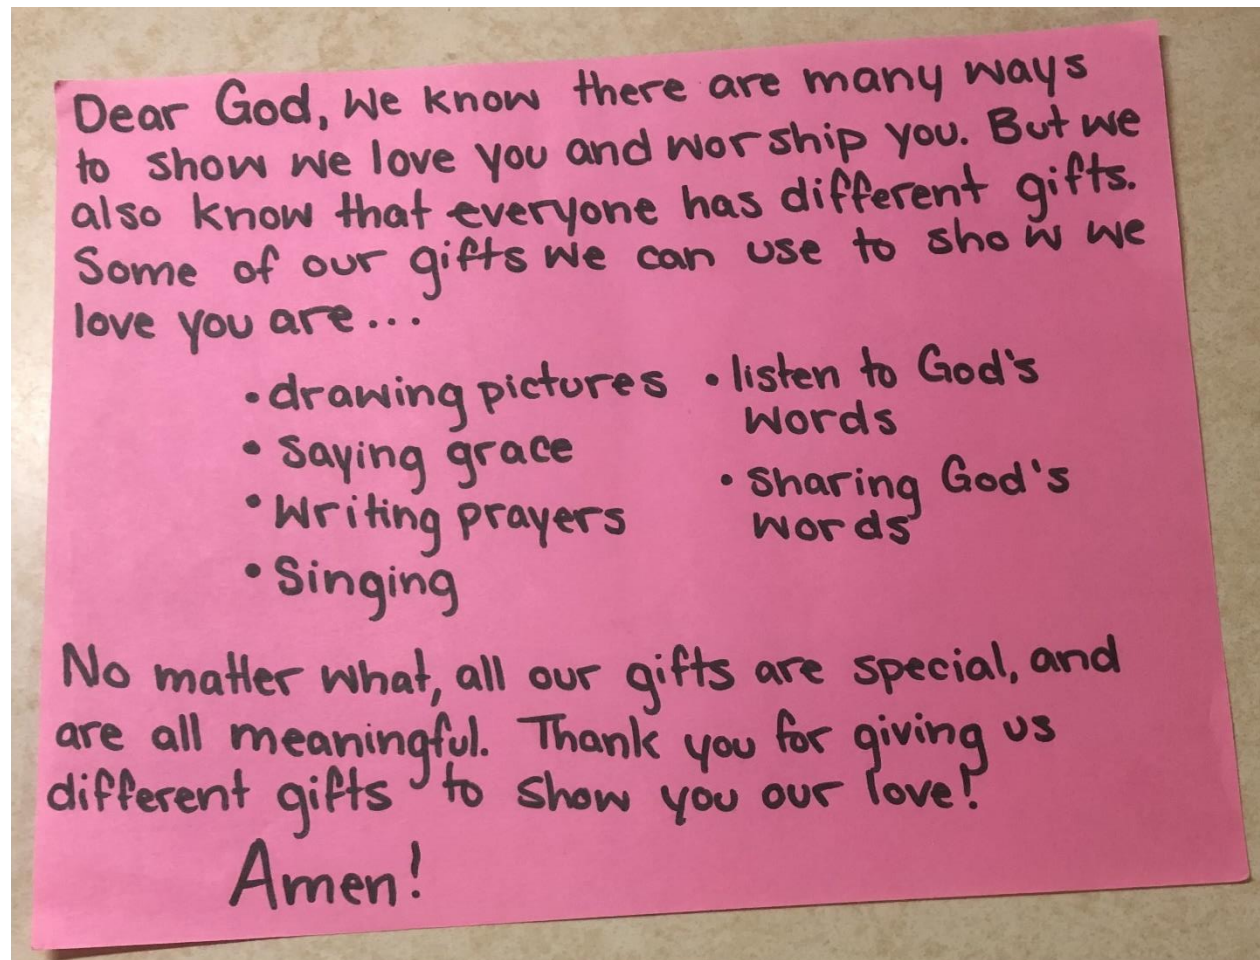 Dear God, We know there are many ways
to show we love you and worship you. But we
also know that everyone has different gifts.
Some of our gifts we can use to show we
love you are...
• drawing pictures
• Saying grace
• Writing prayers
• Singing
• listen to God's
words
• Sharing God's
words
No matter what, all our gifts are special, and
are all meaningful. Thank you for giving us
different gifts to show you our love!
Amen!